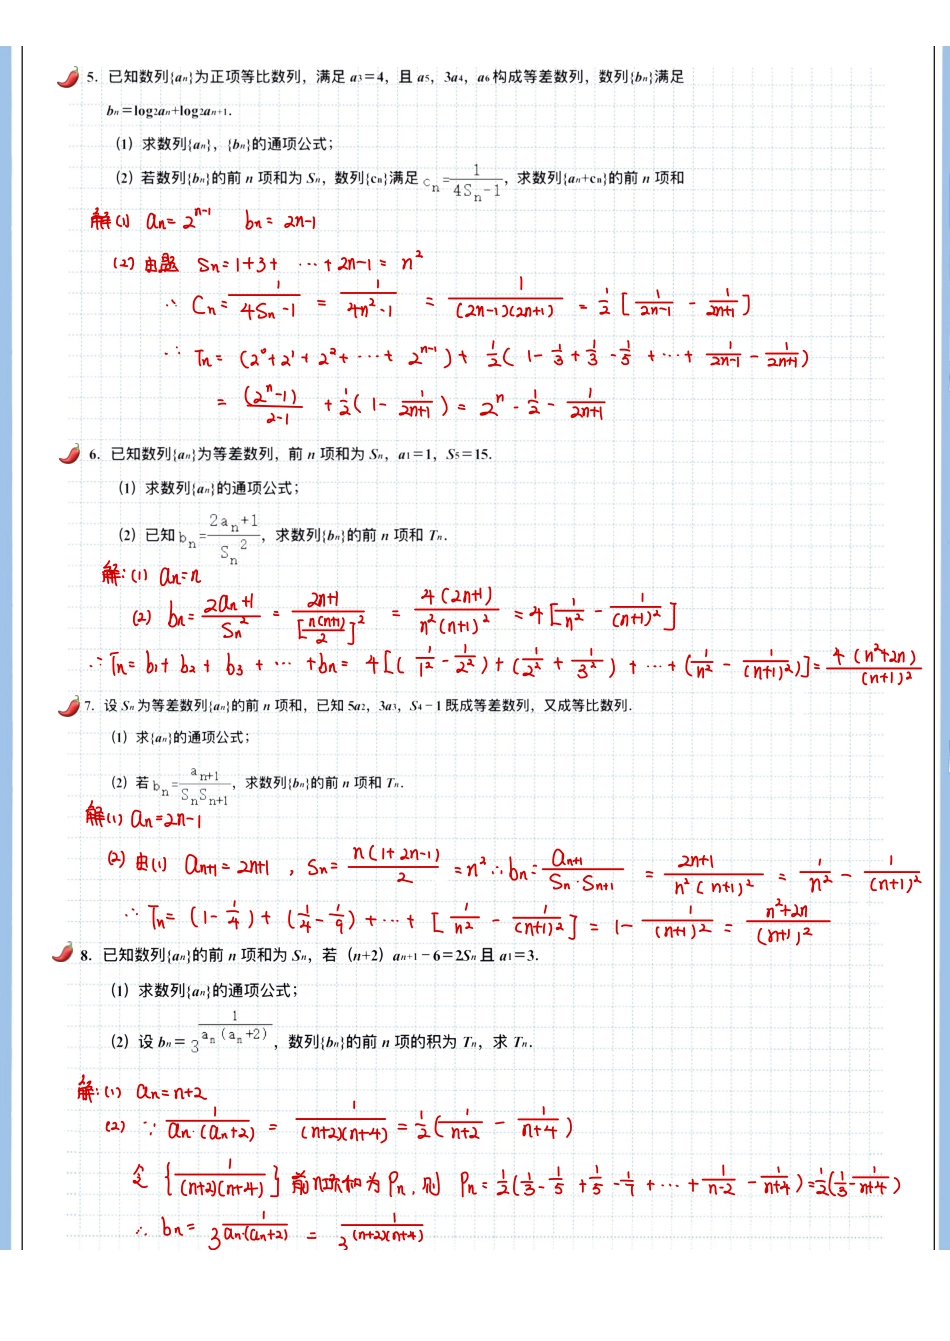 5. 已知数列{an}为正项等比数列，满足 a3＝4，且 a5，3a4，a6 构成等差数列，数列{bn}满足
bn＝log2an+log2an+1.
（1）求数列{an}，{bn}的通项公式；
（2）若数列{bn}的前 n 项和为 Sn，数列{cn}满足 cn=1/(4Sn-1)，求数列{an+cn}的前 n 项和
解(1) an=2^(n-1) bn=2n-1
(2)由题 Sn=1+3+…+2n-1=n²
∴ Cn=1/(4Sn-1) = 1/(4n²-1) = 1/((2n-1)(2n+1)) = 1/2[1/(2n-1) - 1/(2n+1)]
∴ Tn=(2⁰+2¹+2²+…+2^(n-1))+1/2(1-1/3+1/3-1/5+…+1/(2n-1)-1/(2n+1))
= (2^n-1)/(2-1) +1/2(1-1/(2n+1))=2^n-1/2-1/(2n+1)
6. 已知数列{an}为等差数列，前 n 项和为 Sn，a1＝1，S5＝15.
（1）求数列{an}的通项公式；
（2）已知 bn=(2an+1)/Sn²，求数列{bn}的前 n 项和 Tn.
解:(1) an=n
(2) bn=(2an+1)/Sn² = (2n+1)/[n(n+1)/2]² = 4(2n+1)/(n²(n+1)²) =4[1/n² - 1/(n+1)²]
∴Tn=b1+b2+b3+…+bn=4[(1/1²-1/2²)+(1/2²+1/3²)+…+(1/n²-1/(n+1)²)]=4(n²+2n)/(n+1)²
7. 设 Sn 为等差数列{an}的前 n 项和，已知 5a2，3a3，S4－1 既成等差数列，又成等比数列.
（1）求{an}的通项公式；
（2）若 bn=an+1/(SnSn+1)，求数列{bn}的前 n 项和 Tn.
解(1) an=2n-1
(2) 由(1) an+1=2n+1，Sn=n(1+2n-1)/2=n² ∴bn=an+1/(Sn·Sn+1) = (2n+1)/(n²(n+1)²) = 1/n² - 1/(n+1)²
∴Tn=(1-1/4)+(1/4-1/9)+…+[1/n² - 1/(n+1)²]=1-1/(n+1)²=(n²+2n)/(n+1)²
8. 已知数列{an}的前 n 项和为 Sn，若（n+2）an+1－6＝2Sn 且 a1＝3.
（1）求数列{an}的通项公式；
（2）设 bn＝3^(1/(an(an+2)))，数列{bn}的前 n 项的积为 Tn，求 Tn.
解:(1) an=n+2
(2) ∵ 1/(an·(an+2)) = 1/((n+2)(n+4)) = 1/2(1/(n+2) - 1/(n+4))
令{1/((n+2)(n+4))}前n项和为Pn，则 Pn=1/2(1/3-1/5+1/5-1/7+…+1/(n-2)-1/(n+4))=1/2(1/3-1/(n+4))
∴ bn=3^(1/(an·(an+2))) = 3^(1/((n+2)(n+4)))